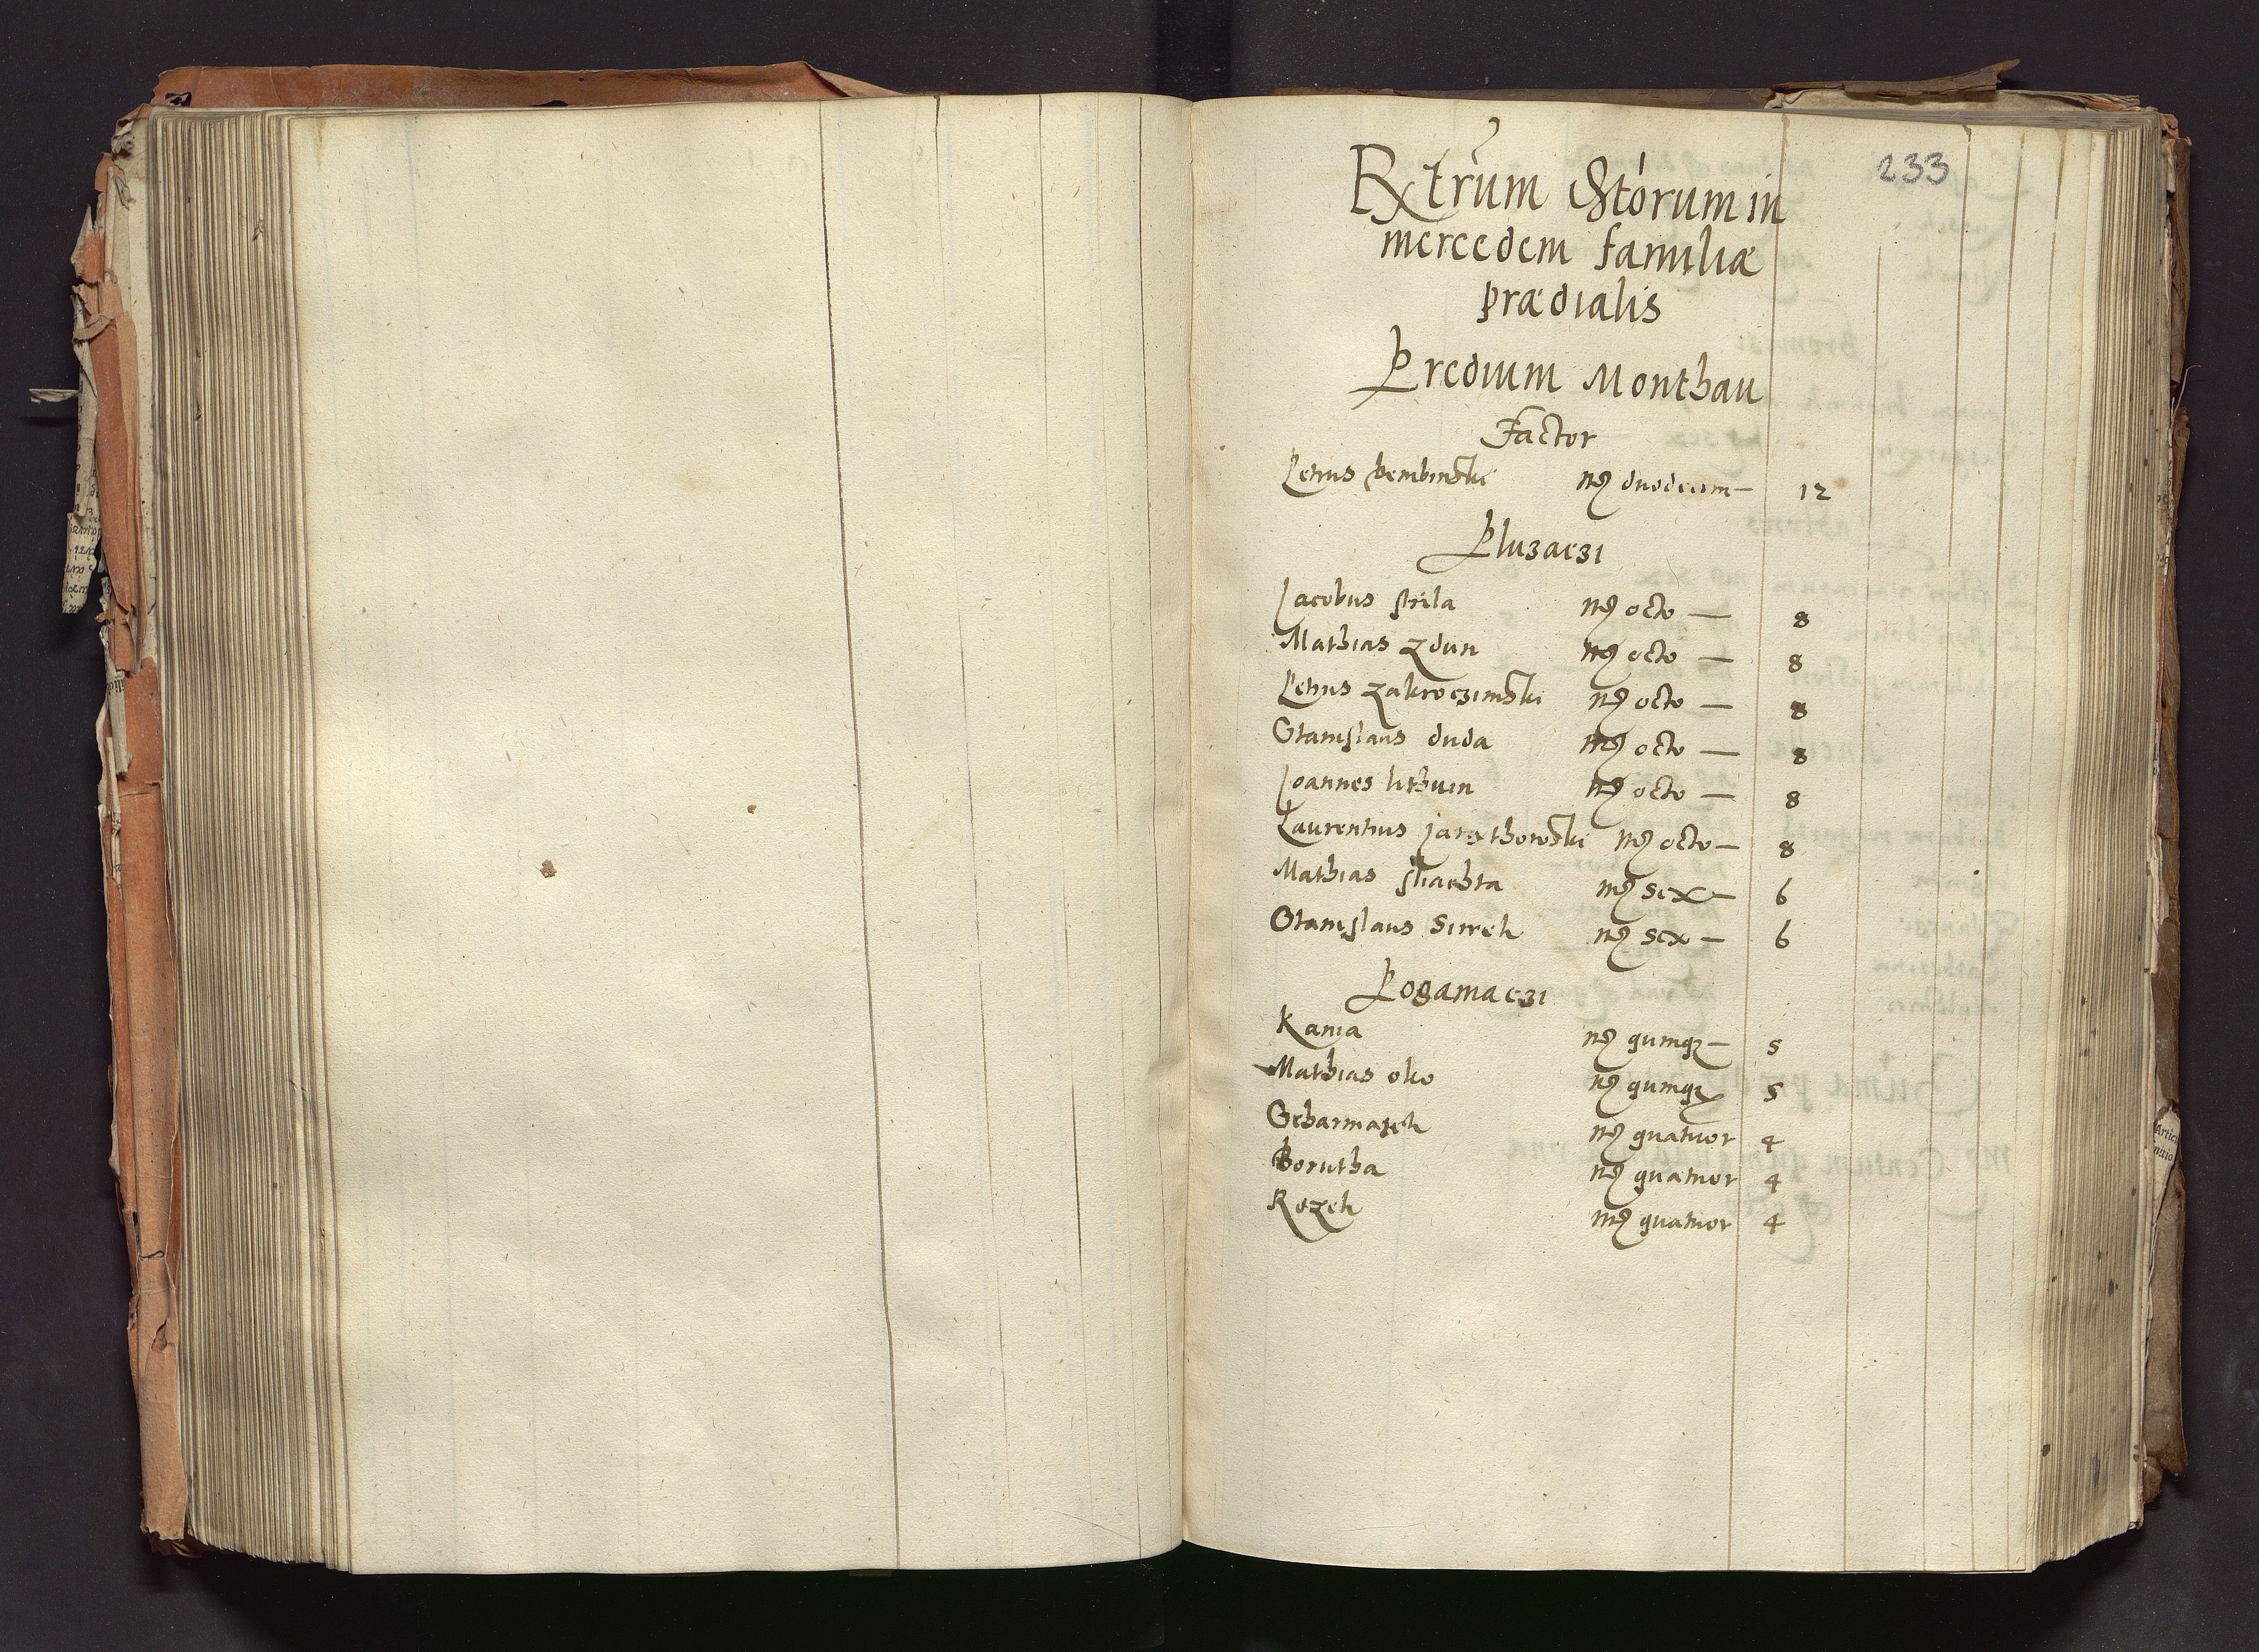 233
Extrum Storum in
mercedem familiæ
prædialis
Predium Monthau
Factor
Petrus Dembinski mȝ duodecim — 12
Pluzaczi
Jacobus strila mȝ octo — 8
Mathias Zdun mȝ octo — 8
Petrus Zakroczimski mȝ octo — 8
Stanislaus duda mȝ octo — 8
Joannes lithvin mȝ octo — 8
Laurentius mȝ octo — 8
Mathias sliachta mȝ sex — 6
Stanislaus mȝ sex — 6
Poganiaczi
Kania mȝ quinqȝ — 5
Mathias oko mȝ quinqȝ 5
mȝ quatuor 4
Borutha mȝ quatuor 4
Kozek mȝ quatuor 4